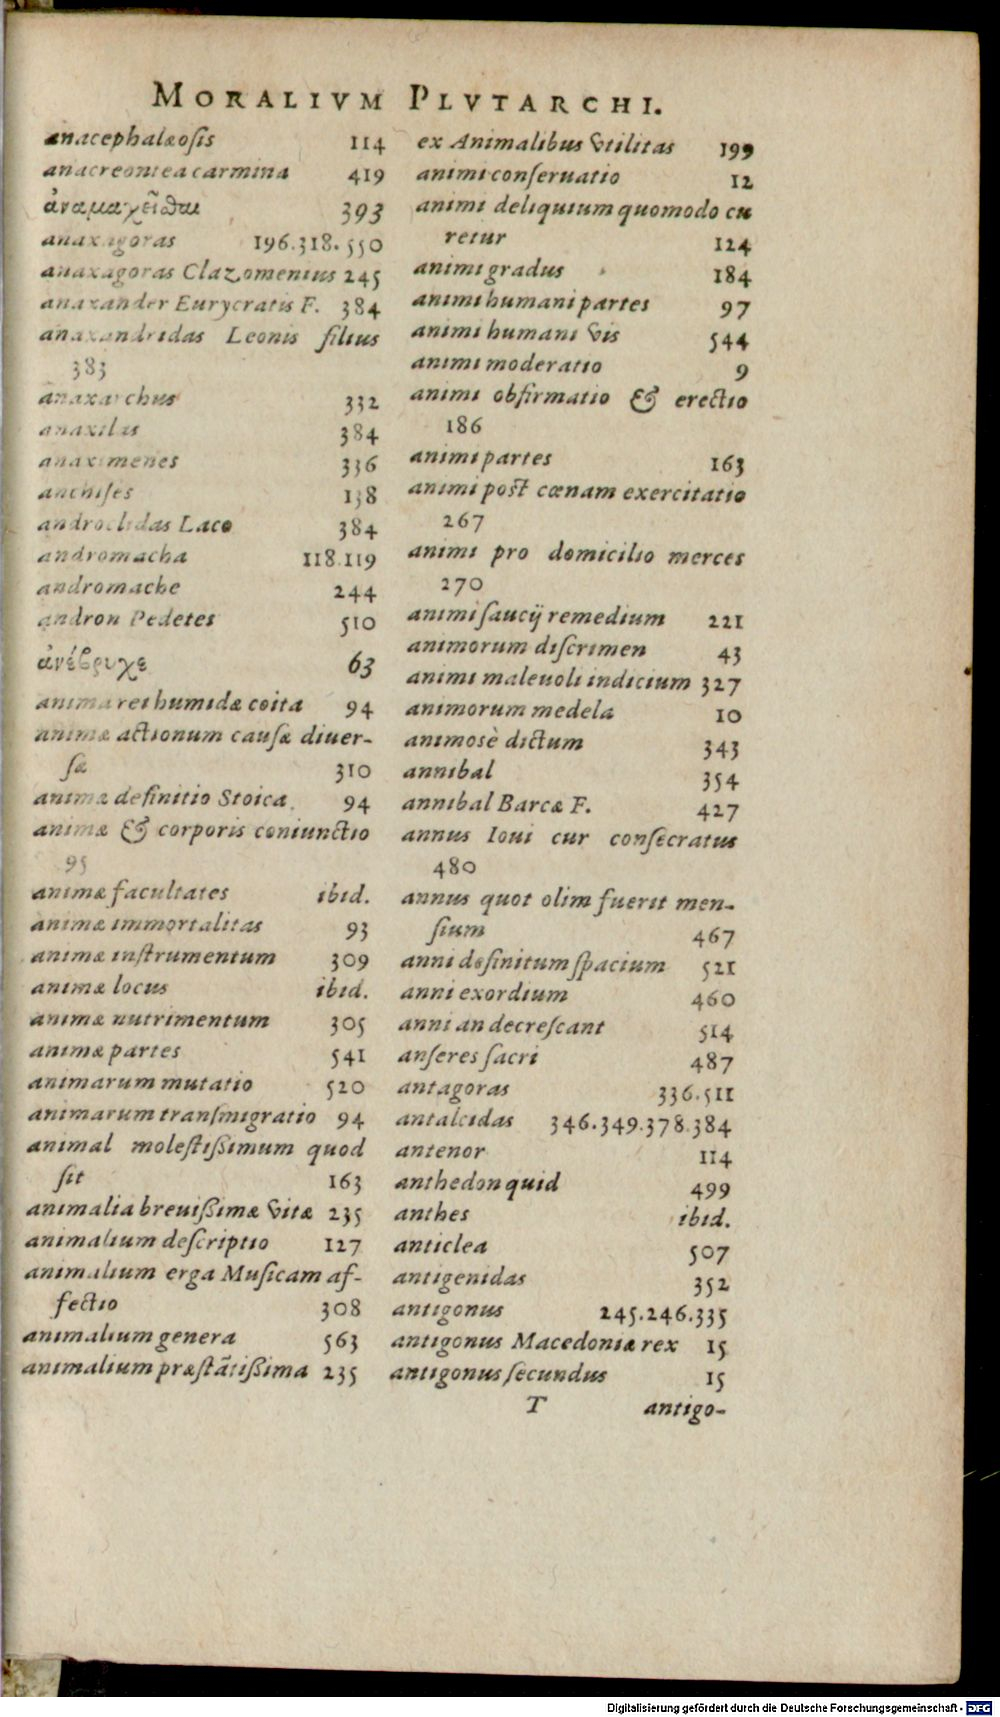 MORALIVM PLVTARCHI.
anacephalæosis 114
anacreontea carmina 419
ἀναμαχεῖσθαι 393
anaxagoras 196.318.550
anaxagoras Clazomenius 245
anaxander Eurycratis F. 384
anaxandridas Leonis filius
383
anaxarchus 332
anaxilas 384
anaximenes 336
anchises 138
androclidas Laco 384
andromacha 118.119
andromache 244
andron Pedetes 510
ἀνέβρυχε 63
anima rei humidæ coita 94
animæ actionum causæ diuer-
sæ 310
animæ definitio Stoica 94
animæ & corporis coniunctio
95
animæ facultates ibid.
animæ immortalitas 93
animæ instrumentum 309
animæ locus ibid.
animæ nutrimentum 305
animæ partes 541
animarum mutatio 520
animarum transmigratio 94
animal molestißimum quod
sit 163
animalia breuißimæ vitæ 235
animalium descriptio 127
animalium erga Musicam af-
fectio 308
animalium genera 563
animalium præstãtißima 235
ex Animalibus vtilitas 199
animi conseruatio 12
animi deliquium quomodo cu
retur 124
animi gradus 184
animi humani partes 97
animi humani vis 544
animi moderatio 9
animi obfirmatio & erectio
186
animi partes 163
animi post cœnam exercitatio
267
animi pro domicilio merces
270
animi saucij remedium 221
animorum discrimen 43
animi maleuoli indicium 327
animorum medela 10
animosè dictum 343
annibal 354
annibal Barcæ F. 427
annus Ioui cur consecratus
480
annus quot olim fuerit men-
sium 467
anni definitum spacium 521
anni exordium 460
anni an decrescant 514
anseres sacri 487
antagoras 336.511
antalcidas 346.349.378.384
antenor 114
anthedon quid 499
anthes ibid.
anticlea 507
antigenidas 352
antigonus 245.246.335
antigonus Macedoniæ rex 15
antigonus secundus 15
T antigo-
Digitalisierung gefördert durch die Deutsche Forschungsgemeinschaft - DFG